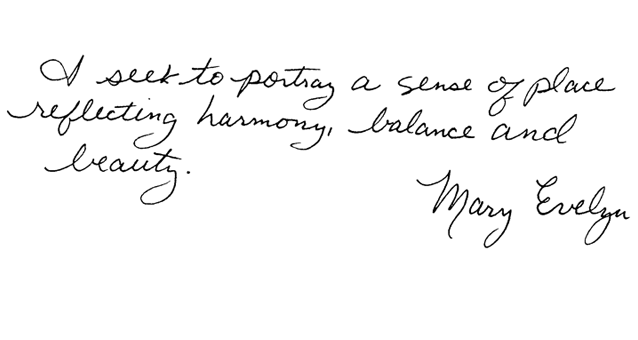 I seek to portray a sense of place
reflecting harmony, balance and
beauty.
Mary Evelyn